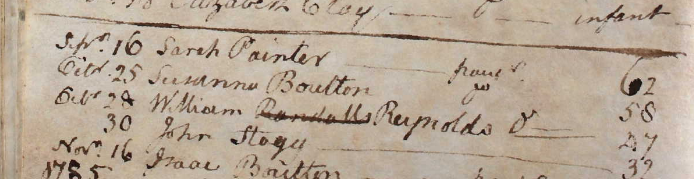 Elizabeth Clay infant
Sepr. 16 Sarah Painter paupr. 62
Octr. 25 Susanna Boulton Do 58
Octr 28 William Randalls Reynolds
30 John 27
Novr. 16 Isaac Boulton 32
1785